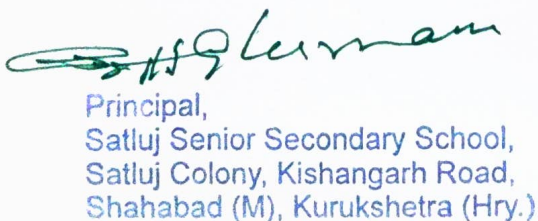 Principal,
Satluj Senior Secondary School,
Satluj Colony, Kishangarh Road,
Shahabad (M), Kurukshetra (Hry.)